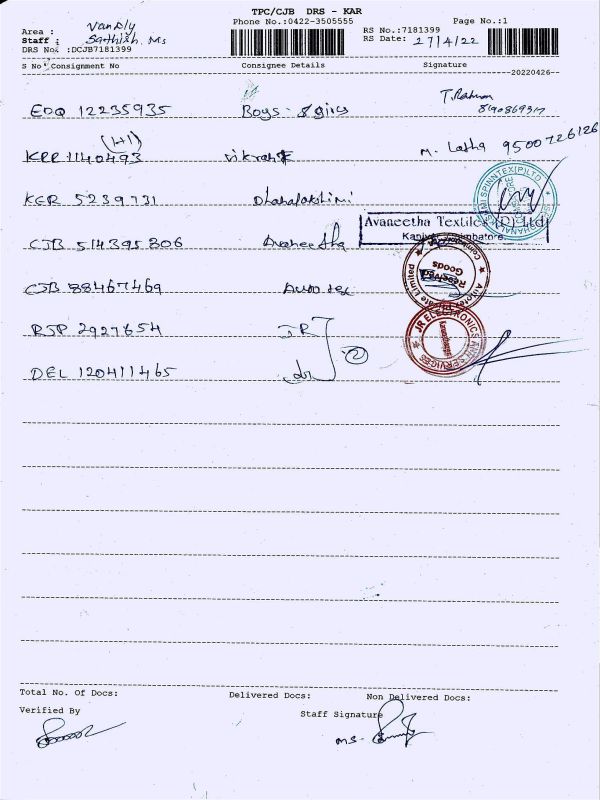 TPC/CJB DRS - KAR
Phone No.:0422-3505555 Page No.:1
Area : Vandly
RS No.:7181399
Staff : Sathish. Ms
RS Date: 27/4/22
DRS No. :DCJB7181399
S No Consignment No Consignee Details Signature
20220426
EDQ 12235935 Boys
8190869317
(1+1)
KRR 1140493 M. Latha 9500726126
KGR 5239731 Dhanalakshmi
SPINNTEX(P)LTD
Avaneetha Textiles (P) Ltd
CJB 514395806 Avaneetha
Received Goods
CJB 88467469 Auro tex
RJP 2927654 JR
JR ELECTRONICS AND SERVICES
(2)
DEL 120411465 do
Total No. Of Docs: Delivered Docs: Non Delivered Docs:
Verified By Staff Signature
MS.